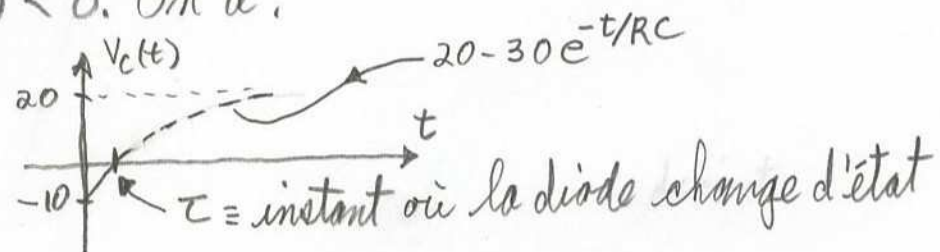 < 0. On a :
V_C(t)
20 - 30 e^{-t/RC}
20
t
-10
τ ≡ instant où la diode change d'état